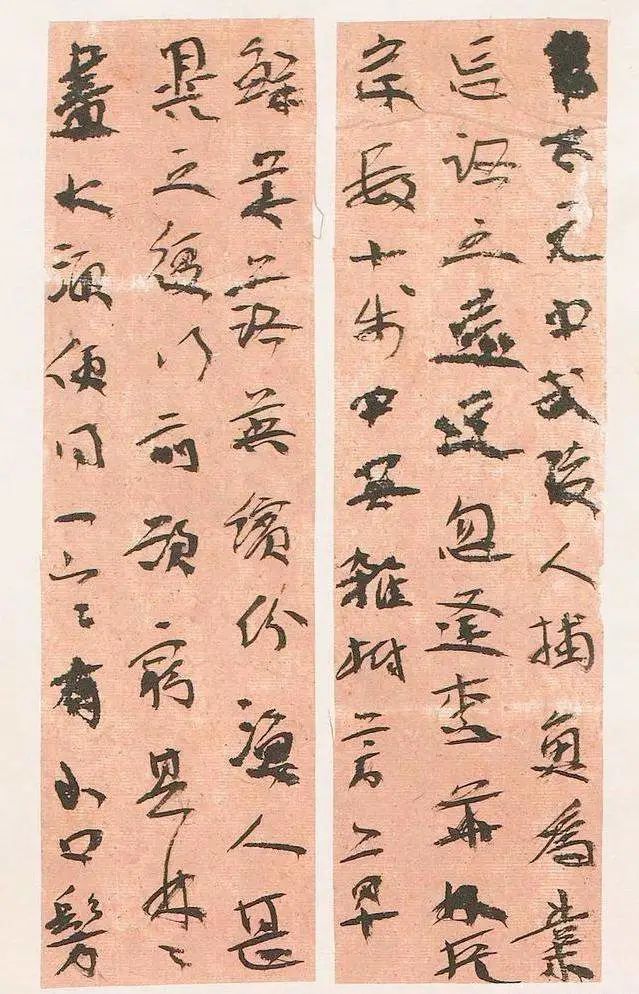 晉太元中武陵人捕魚為業
忘路之遠近忽逢桃華林夾
岸數十步中無雜樹芳草
鮮美落英繽紛漁人甚
異之復行前欲窮其林〻
盡水源便得一山〻有小口髣